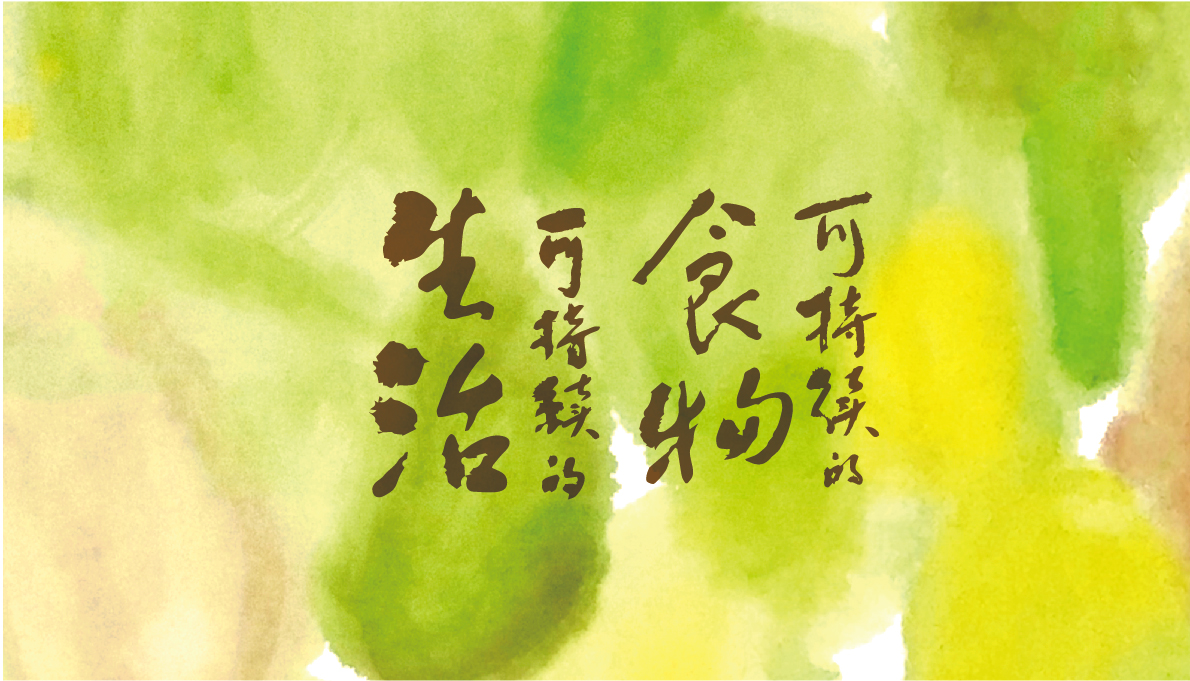 可持續的
食物
可持續的
生活